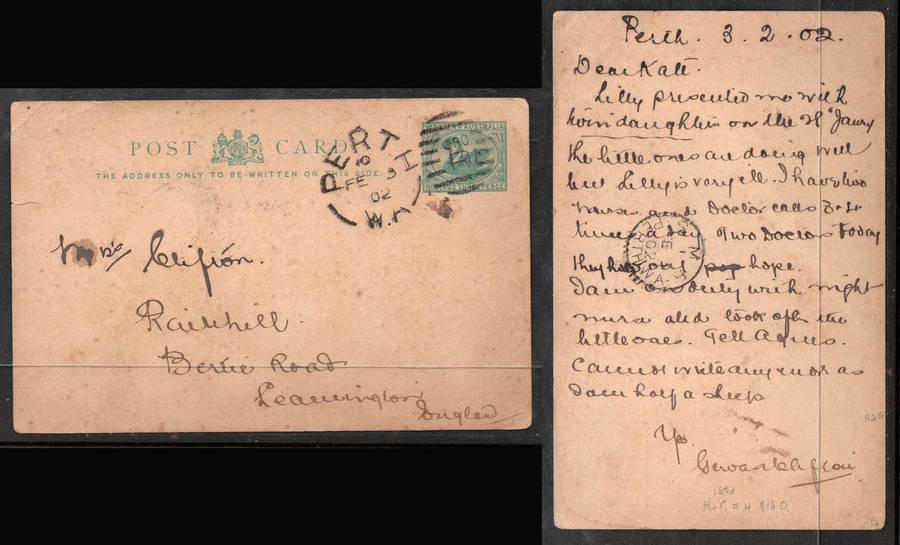 POST CARD
THE ADDRESS ONLY TO BE WRITTEN ON THIS SIDE
WESTERN AUSTRALIA
PERTH
6
FE 3
02
W.A
Mrs Clifton.
Railhill.
Road
Leamington
Perth. 3.2.02.
Dear Kate.
Lilly presented me with
twin daughters on the 28 Jany
the little ones are doing well
but Lilly is very ill. I have two
nurses and Doctor calls 3-4
times a day Two Doctors today
they hope.
I am on duty with night
nurse and look after the
little ones. Tell Agnes.
Cannot write any more as
I am half asleep
Yrs
Clifton
1890
H+G # 4